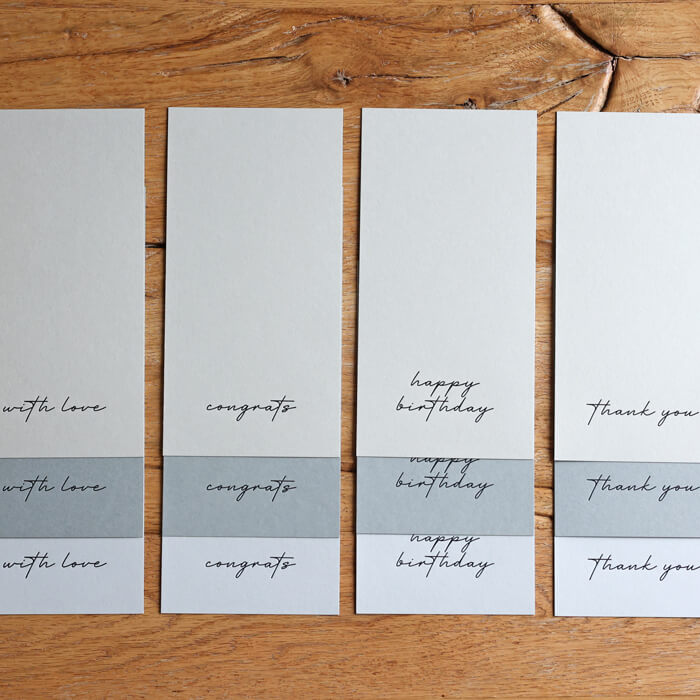 with love
congrats
happy
birthday
thank you
with love
congrats
happy
birthday
thank you
with love
congrats
happy
birthday
thank you